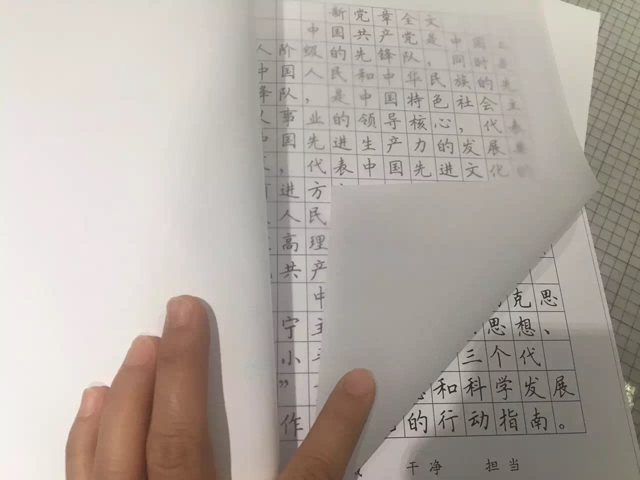 新党章全文
中国共产党是中国工
人阶级的先锋队，同时是
中国人民和中华民族的先
锋队，是中国特色社会主
事业的领导核心，代表
国先进生产力的发展
，代表中国先进文化
进方
人民
高理
共产
中 克思
宁主 思想、
小平 三个代
” 和科学发展
作 的行动指南。
干净 担当